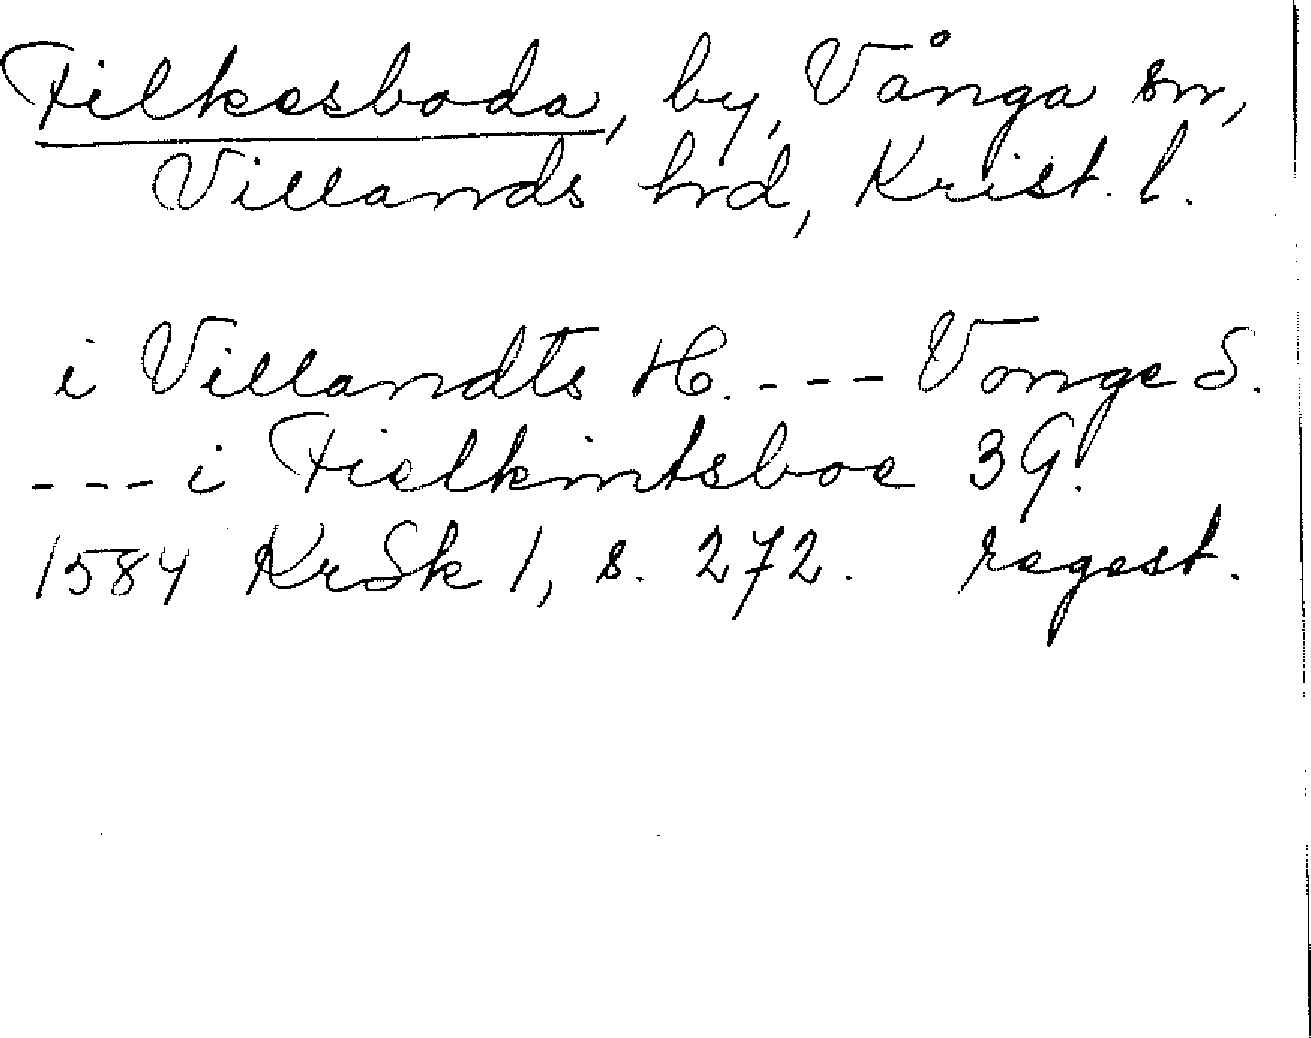 Filkesboda, by, Vånga sn,
Villands hrd, Krist. l.
i Villandts H. --- Vonge S.
--- i Fielkintsboe 3 G.
1584 KrSk 1, s. 272. regest.